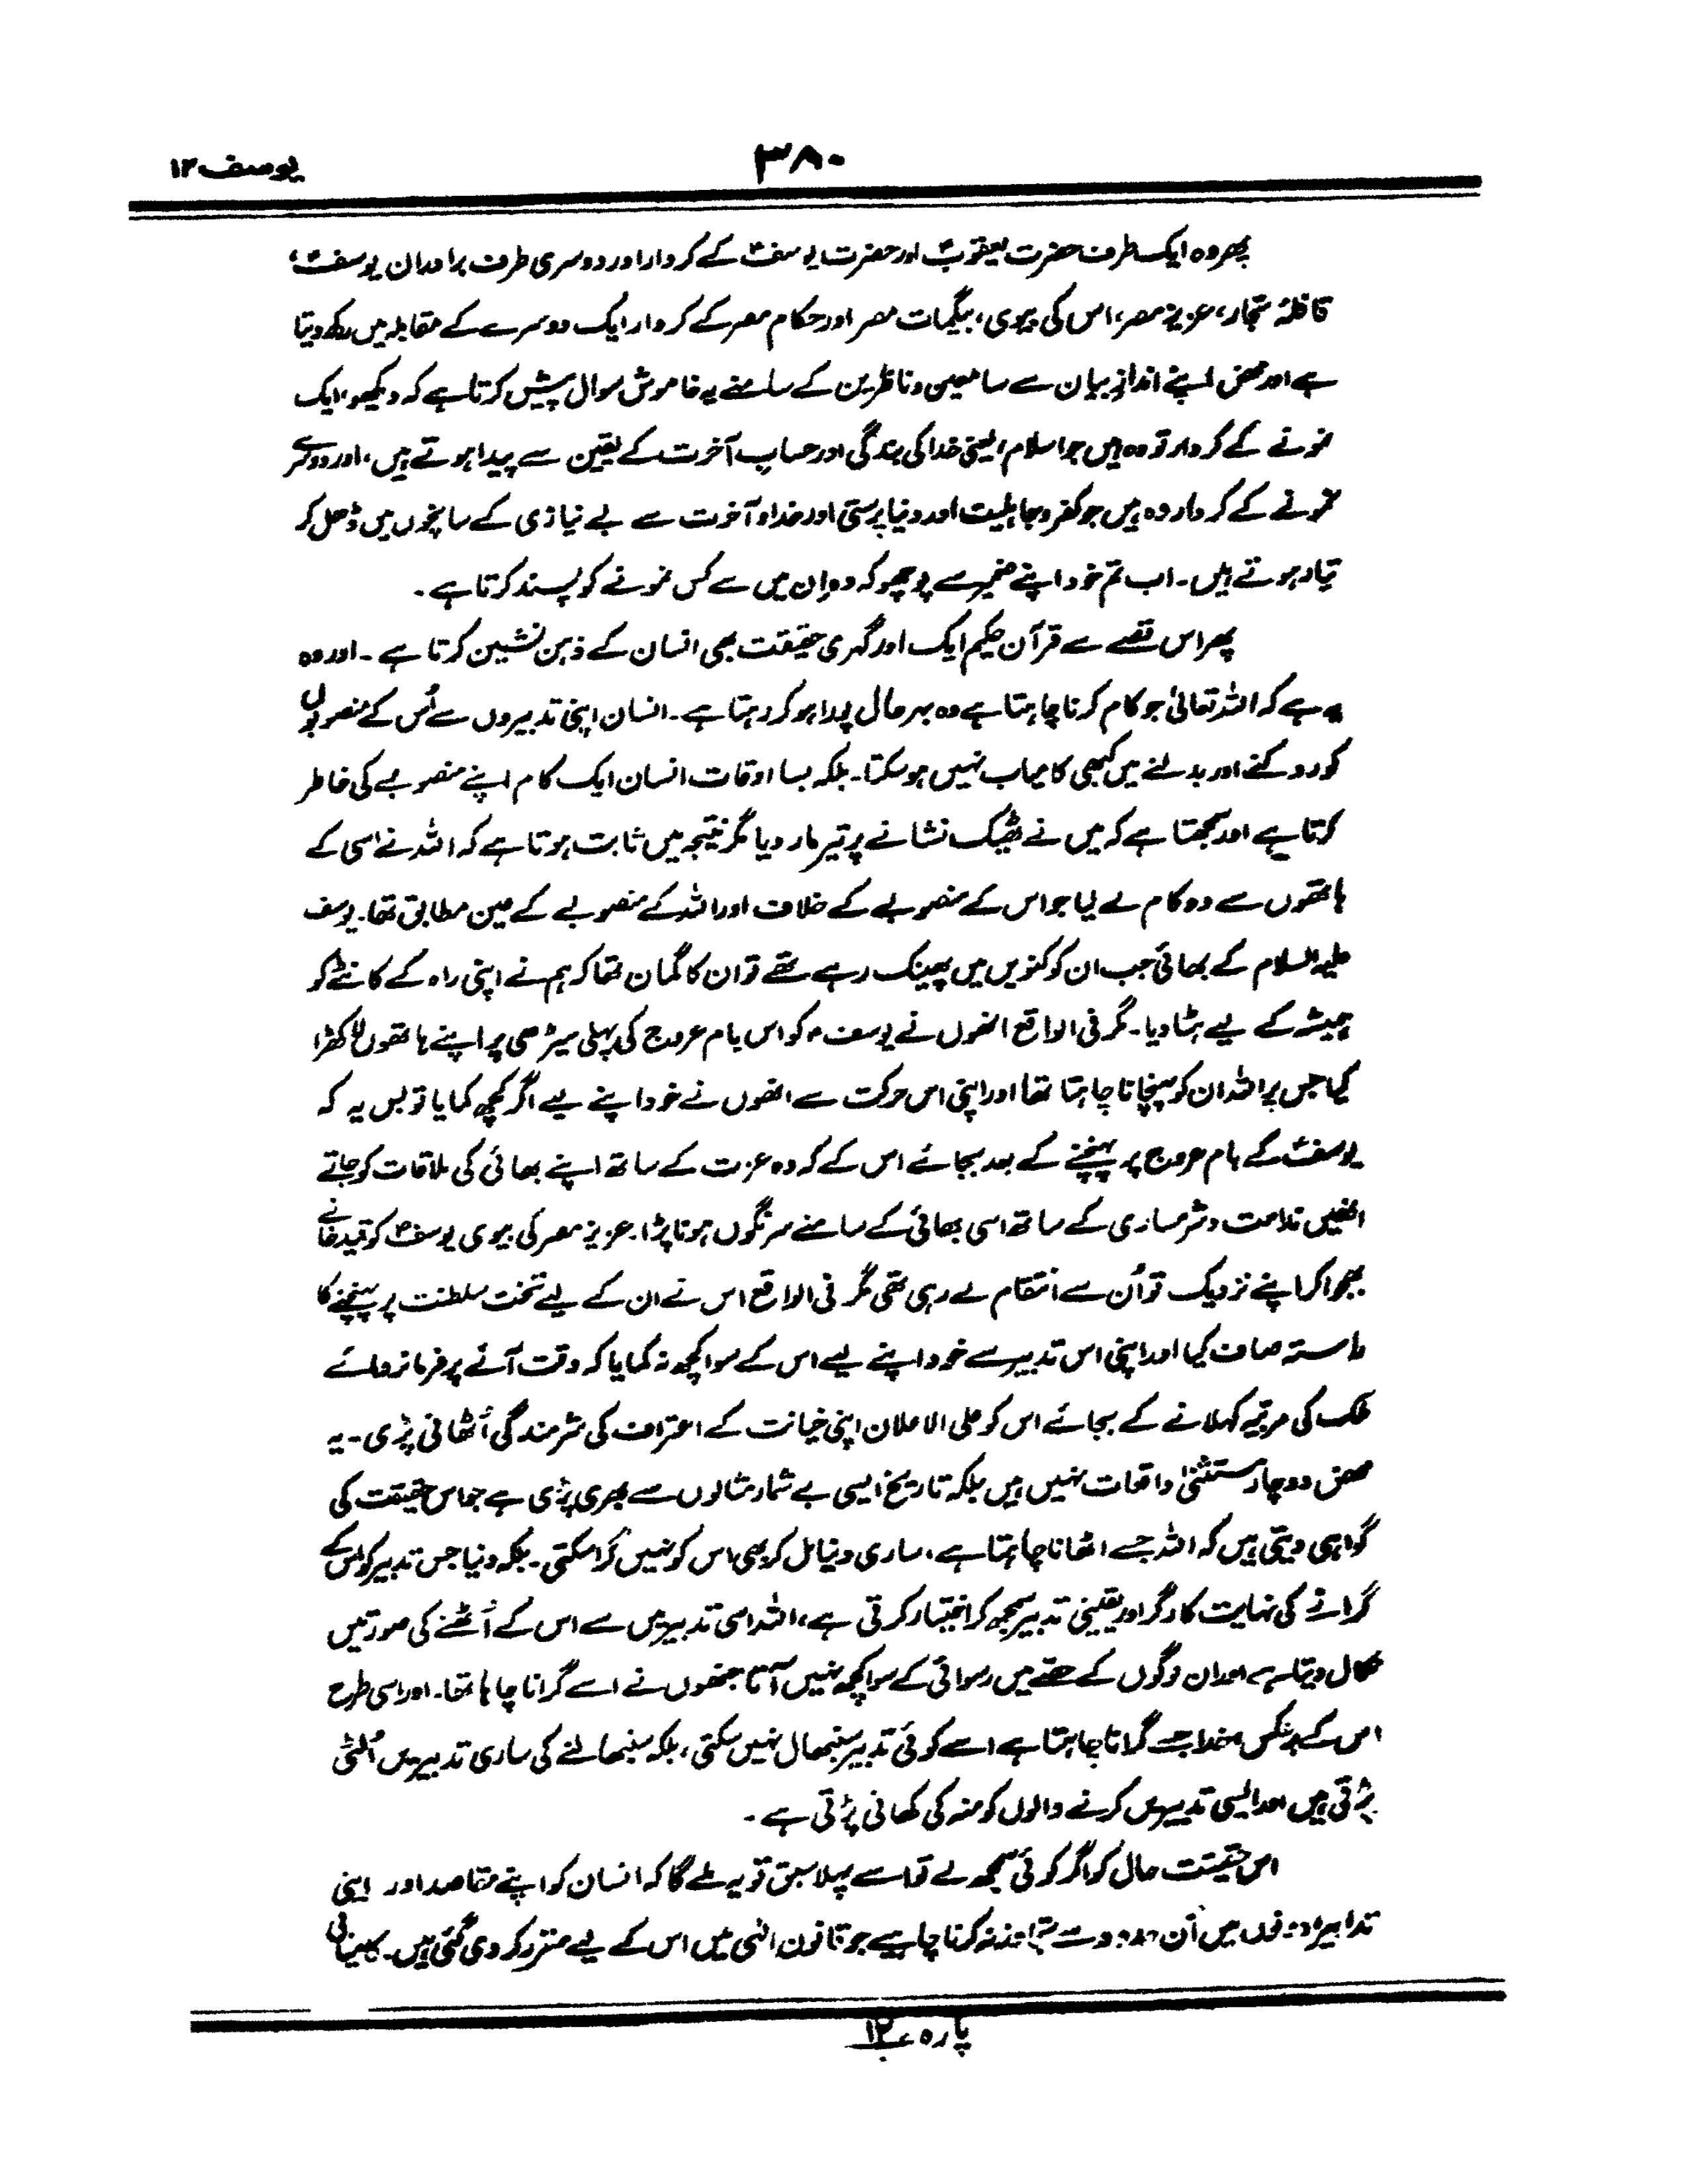 یوسف ۱۲
۳۸۰
پھر وہ ایک طرف حضرت یعقوبؑ اور حضرت یوسفؑ کے کردار اور دوسری طرف برادران یوسفؑ،
قافلۂ تجار، عزیز مصر، اس کی بیوی، بیگمات مصر اور حکام مصر کے کردار ایک دوسرے کے مقابلہ میں رکھ دیتا
ہے اور محض اپنے اندازِ بیان سے سامعین و ناظرین کے سامنے یہ خاموش سوال پیش کرتا ہے کہ دیکھو، ایک
نمونے کے کردار تو وہ ہیں جو اسلام، یعنی خدا کی بندگی اور حسابِ آخرت کے یقین سے پیدا ہوتے ہیں، اور دوسرے
نمونے کے کردار وہ ہیں جو کفر و جاہلیت اور دنیا پرستی اور خدا و آخرت سے بے نیازی کے سانچوں میں ڈھل کر
تیار ہوتے ہیں۔ اب تم خود اپنے ضمیر سے پوچھو کہ وہ اِن میں سے کس نمونے کو پسند کرتا ہے۔
پھر اس قصے سے قرآن حکیم ایک اور گہری حقیقت بھی انسان کے ذہن نشین کرتا ہے۔ اور وہ
یہ ہے کہ اللہ تعالیٰ جو کام کرنا چاہتا ہے وہ بہرحال پورا ہو کر رہتا ہے۔ انسان اپنی تدبیروں سے اُس کے منصوبوں
کو روکنے اور بدلنے میں کبھی کامیاب نہیں ہو سکتا۔ بلکہ بسا اوقات انسان ایک کام اپنے منصوبے کی خاطر
کرتا ہے اور سمجھتا ہے کہ میں نے ٹھیک نشانے پر تیر مار دیا مگر نتیجہ میں ثابت ہوتا ہے کہ اللہ نے اسی کے
ہاتھوں سے وہ کام لے لیا جو اس کے منصوبے کے خلاف اور اللہ کے منصوبے کے عین مطابق تھا۔ یوسف
علیہ السلام کے بھائی جب ان کو کنویں میں پھینک رہے تھے تو ان کا گمان تھا کہ ہم نے اپنی راہ کے کانٹے کو
ہمیشہ کے لیے ہٹا دیا۔ مگر فی الواقع انھوں نے یوسفؑ کو اس بام عروج کی پہلی سیڑھی پر اپنے ہاتھوں لا کھڑا
کیا جس پر اللہ ان کو پہنچانا چاہتا تھا اور اپنی اس حرکت سے انھوں نے خود اپنے لیے اگر کچھ کمایا تو بس یہ کہ
یوسفؑ کے بام عروج پر پہنچنے کے بعد بجائے اس کے کہ وہ عزت کے ساتھ اپنے بھائی کی ملاقات کو جاتے
انھیں ندامت و شرمساری کے ساتھ اسی بھائی کے سامنے سرنگوں ہونا پڑا۔ عزیز مصر کی بیوی یوسفؑ کو قید خانے
بھجوا کر اپنے نزدیک تو اُن سے انتقام لے رہی تھی مگر فی الواقع اس نے ان کے لیے تخت سلطنت پر پہنچنے کا
راستہ صاف کیا اور اپنی اس تدبیر سے خود اپنے لیے اس کے سوا کچھ نہ کمایا کہ وقت آنے پر فرمانروائے
ملک کی مربیہ کہلانے کے بجائے اس کو علی الاعلان اپنی خیانت کے اعتراف کی شرمندگی اُٹھانی پڑی۔ یہ
محض دو چار مستثنیٰ واقعات نہیں ہیں بلکہ تاریخ ایسی بے شمار مثالوں سے بھری پڑی ہے جو اس حقیقت کی
گواہی دیتی ہیں کہ اللہ جسے اٹھانا چاہتا ہے، ساری دنیا مل کر بھی اس کو نہیں گرا سکتی۔ بلکہ دنیا جس تدبیر کو اس کے
گرانے کی نہایت کارگر اور یقینی تدبیر سمجھ کر اختیار کرتی ہے، اللہ اسی تدبیر میں سے اس کے اُٹھنے کی صورتیں
نکال دیتا ہے اور ان لوگوں کے حصے میں رسوائی کے سوا کچھ نہیں آتا جنھوں نے اسے گرانا چاہا تھا۔ اور اسی طرح
اس کے برعکس، خدا جسے گرانا چاہتا ہے اسے کوئی تدبیر سنبھال نہیں سکتی، بلکہ سنبھالنے کی ساری تدبیریں اُلٹی
پڑتی ہیں اور ایسی تدبیریں کرنے والوں کو منہ کی کھانی پڑتی ہے۔
اس حقیقت حال کو اگر کوئی سمجھ لے تو اسے پہلا سبق تو یہ ملے گا کہ انسان کو اپنے مقاصد اور اپنی
تدابیر دونوں میں اُن حدود سے تجاوز نہ کرنا چاہیے جو قانون الٰہی میں اس کے لیے مقرر کر دی گئی ہیں۔ کامیابی
پارہ ۱۲